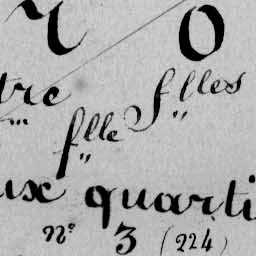 r 0
tre flles
''' ''
flle
''
ux quarti
nº 3 (224)